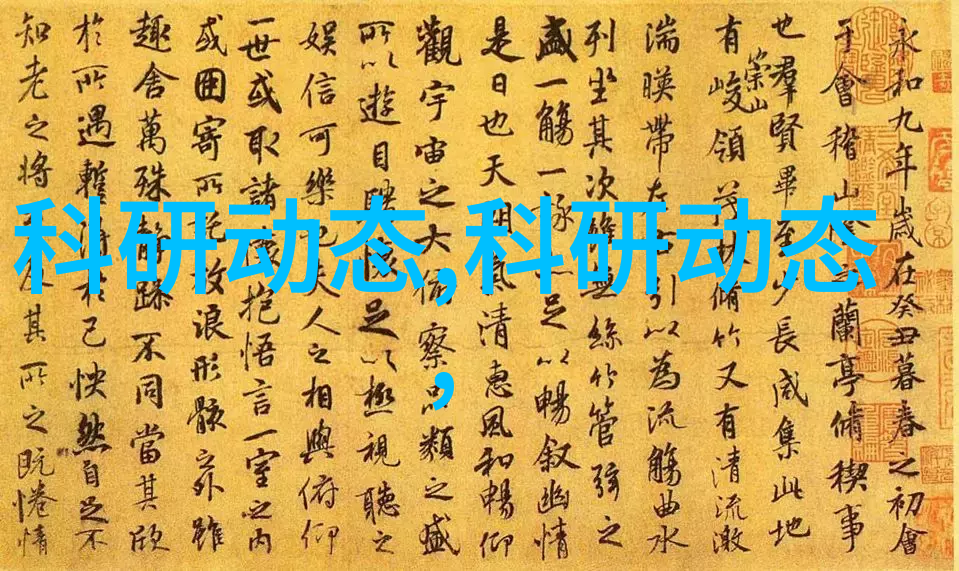 科研动态,科研动态
,
永和九年歲在癸丑暮春之初會
于會稽山之蘭亭脩禊事
也羣賢畢至少長咸集此地
有崇山峻領茂林脩竹又有清流激
湍暎帶左右引以為流觴曲水
列坐其次雖無絲竹管弦之
盛一觴一詠足以暢叙幽情
是日也天朗氣清惠風和暢仰
觀宇宙之大俯察品類之盛
所以遊目騁懷足以極視聽之
娛信可樂也夫人之相與俯仰
一世或取諸懷抱悟言一室之內
或因寄所託放浪形骸之外雖
趣舍萬殊靜躁不同當其欣
於所遇蹔得於己怏然自足不
知老之將至及其所之既惓情